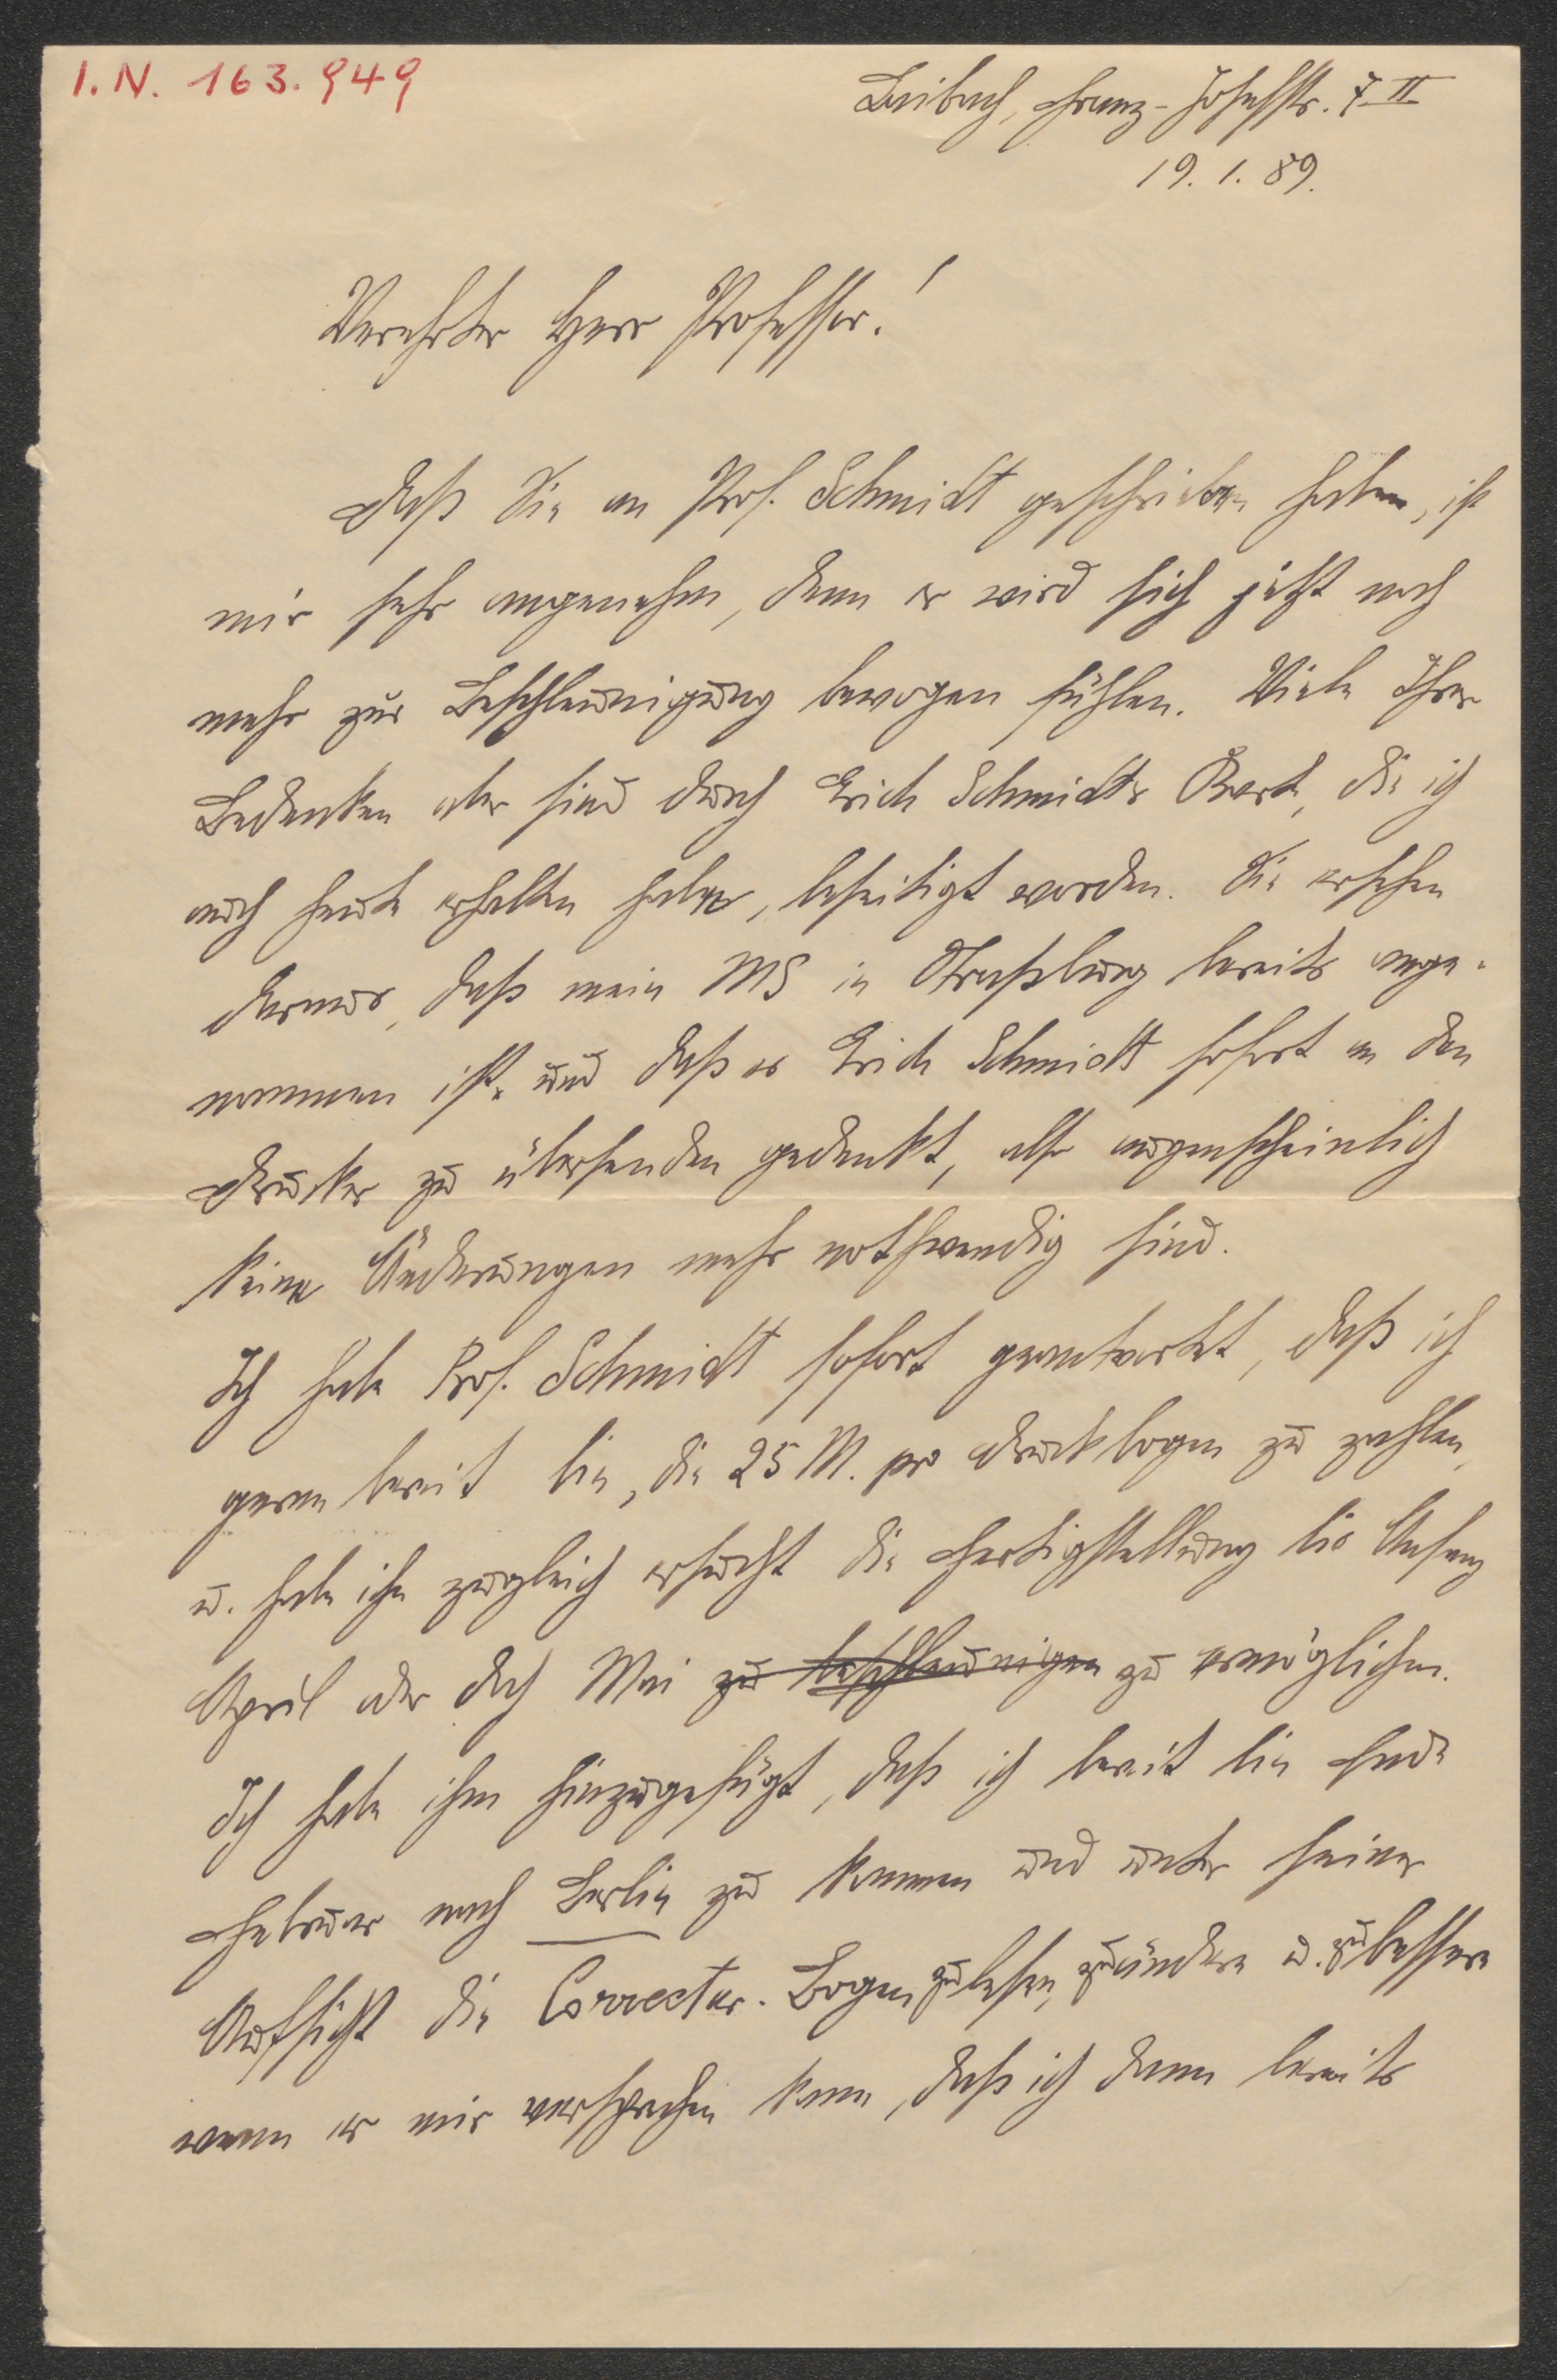 I.N. 163.949
Laibach, Franz-Josefstr. 7 II
19. 1. 89.
Verehrter Herr Professor!
Daß Sie an Prof. Schmidt geschrieben haben, ist
mir sehr angenehm, denn er wird sich jetzt noch
mehr zur Beschleunigung bewogen fühlen. Viele Ihrer
Bedenken aber sind durch Erich Schmidts Karte, die ich
auch heute erhalten habe, beseitigt worden. Sie ersehen
daraus, daß mein MS in Straßburg bereits ange-
nommen ist, und daß es Erich Schmidt sofort an den
Drucker zu übersenden gedenkt, also augenscheinlich
keine Änderungen mehr nothwendig sind.
Ich habe Prof. Schmidt sofort geantwortet, daß ich
gerne bereit bin, die 25 M. pro Druckbogen zu zahlen,
u. habe ihn zugleich ersucht die Fertigstellung bis Anfang
April oder doch Mai zu beschleunigen zu ermöglichen.
Ich habe ihm hinzugefügt, daß ich bereit bin Ende
Februar nach Berlin zu kommen und unter seiner
Aufsicht die Correctur-Bogen zu lesen, zu ändern u. zu bessern
wenn er mir versprechen kann, daß ich dann bereits